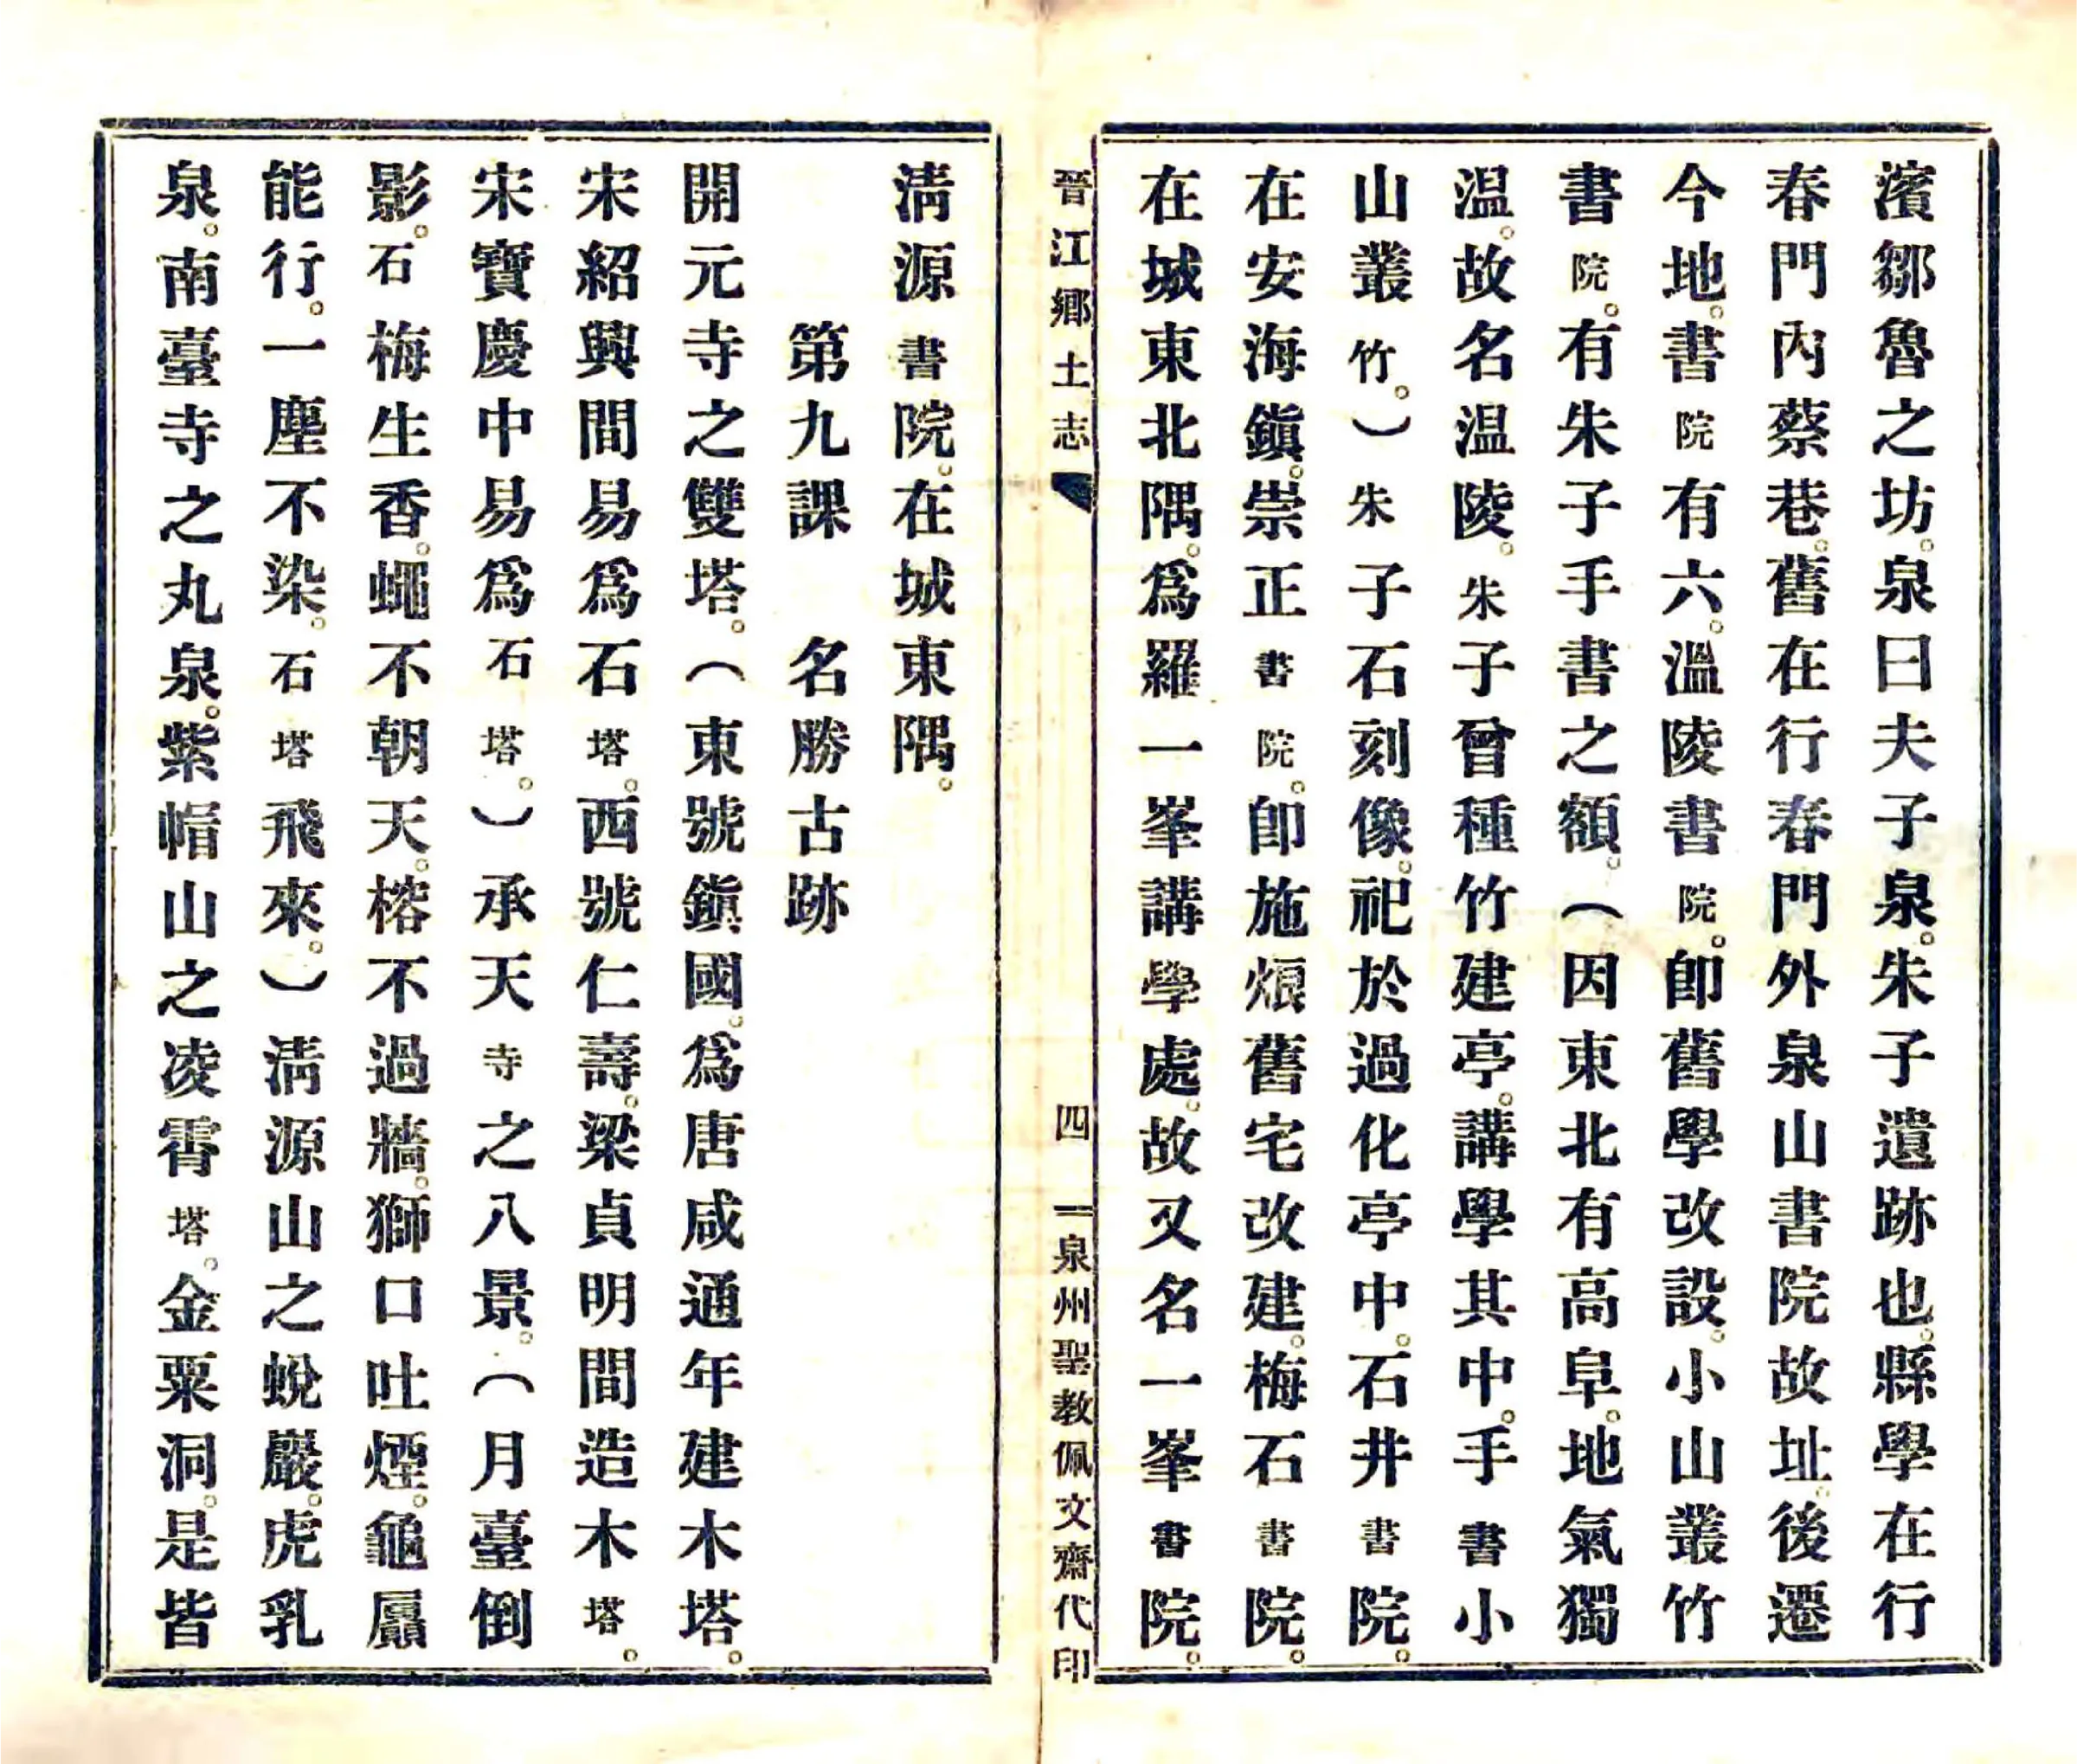 濱鄒魯之坊。泉曰夫子泉。朱子遺跡也。縣學在行
春門內蔡巷。舊在行春門外泉山書院故址。後遷
今地。書院有六。溫陵書院。卽舊學改設。小山叢竹
書院。有朱子手書之額。（因東北有高阜。地氣獨
温。故名温陵。朱子曾種竹建亭。講學其中。手書小
山叢竹。）朱子石刻像。祀於過化亭中。石井書院。
在安海鎭。崇正書院。卽施烺舊宅改建。梅石書院。
在城東北隅。爲羅一峯講學處。故又名一峯書院。
晉江鄉土志
四
泉州聖教佩文齋代印
淸源書院。在城東隅。
第九課　名勝古跡
開元寺之雙塔。（東號鎭國。爲唐咸通年建木塔。
宋紹興間易爲石塔。西號仁壽。梁貞明間造木塔。
宋寶慶中易爲石塔。）承天寺之八景。（月臺倒
影。石梅生香。蠅不朝天。榕不過牆。獅口吐煙。龜屭
能行。一塵不染。石塔飛來。）淸源山之蛻巖。虎乳
泉。南臺寺之丸泉。紫帽山之凌霄塔。金粟洞。是皆